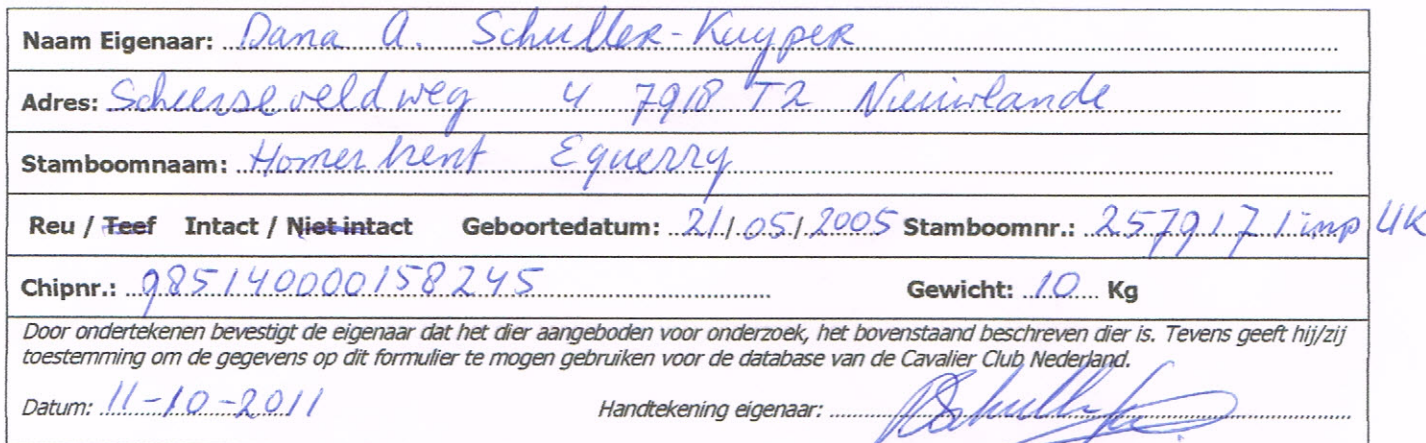 Naam Eigenaar: Dana A. Schuller-Kuyper
Adres: Scheerseveldweg 4 7918 TZ Nieuwlande
Stamboomnaam: Homerbrent Equerry
Reu / Teef Intact / Niet intact Geboortedatum: 21/05/2005 Stamboomnr.: 2579171 imp UK
Chipnr.: 985140000158245 Gewicht: 10 Kg
Door ondertekenen bevestigt de eigenaar dat het dier aangeboden voor onderzoek, het bovenstaand beschreven dier is. Tevens geeft hij/zij
toestemming om de gegevens op dit formulier te mogen gebruiken voor de database van de Cavalier Club Nederland.
Datum: 11-10-2011 Handtekening eigenaar: